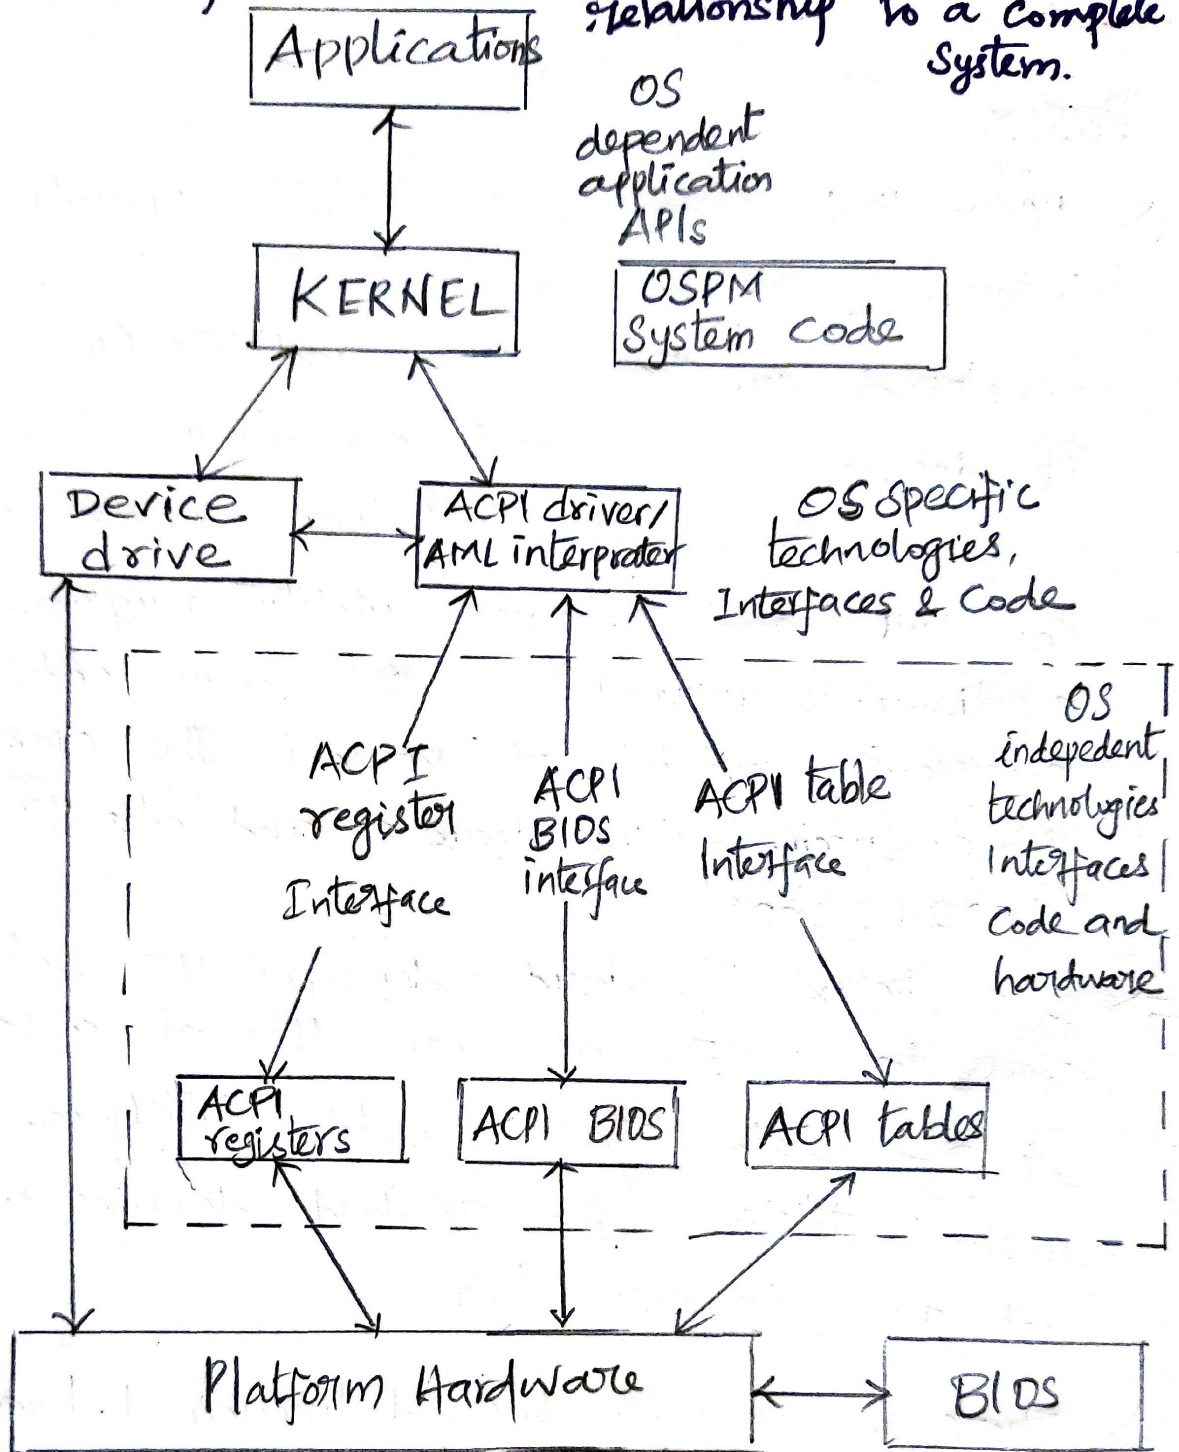 relationship to a complete
System.
Applications
OS
dependent
application
APIs
KERNEL
OSPM
System code
Device
drive
ACPI driver/
AML interprater
OS specific
technologies,
Interfaces & Code
OS
indepedent
technologies
Interfaces
Code and
hardware
ACPI
register
Interface
ACPI
BIOS
interface
ACPI table
Interface
ACPI
registers
ACPI BIOS
ACPI tables
Platform Hardware
BIOS